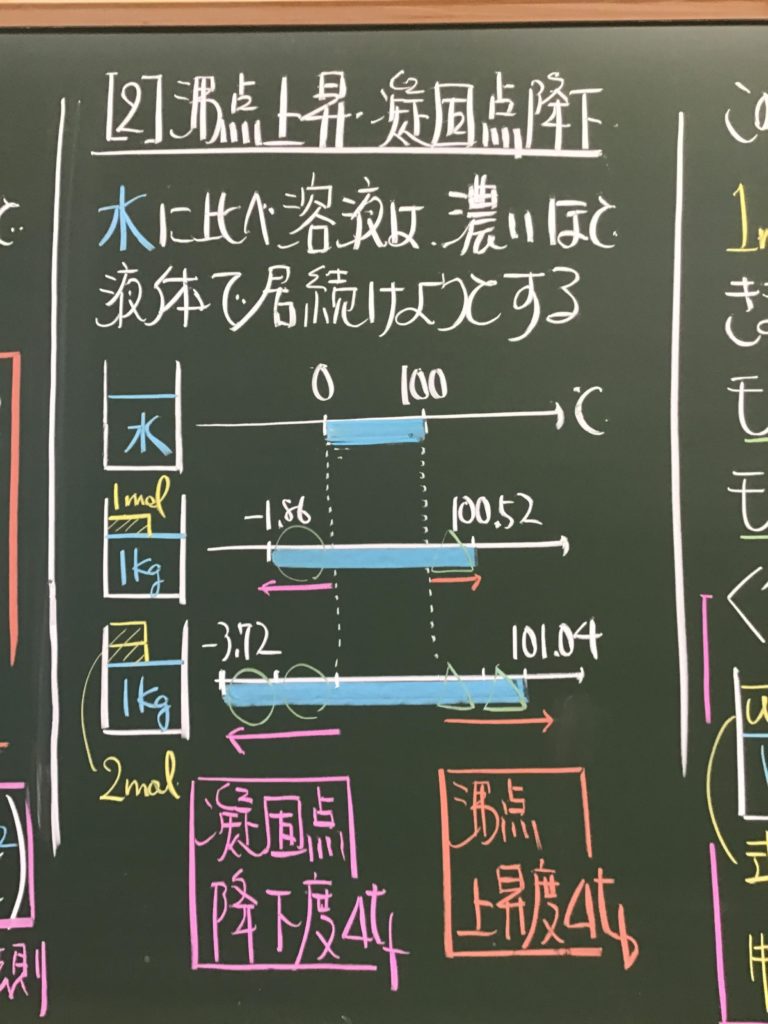 [2]沸点上昇・凝固点降下
水に比べ溶液は、濃いほど
液体で居続けようとする
0 100 ℃
水
1mol
-1.86 100.52
1kg
-3.72 101.04
1kg
2mol
凝固点
降下度Δtf
沸点
上昇度Δtb
この
き
モ
モ
く
則